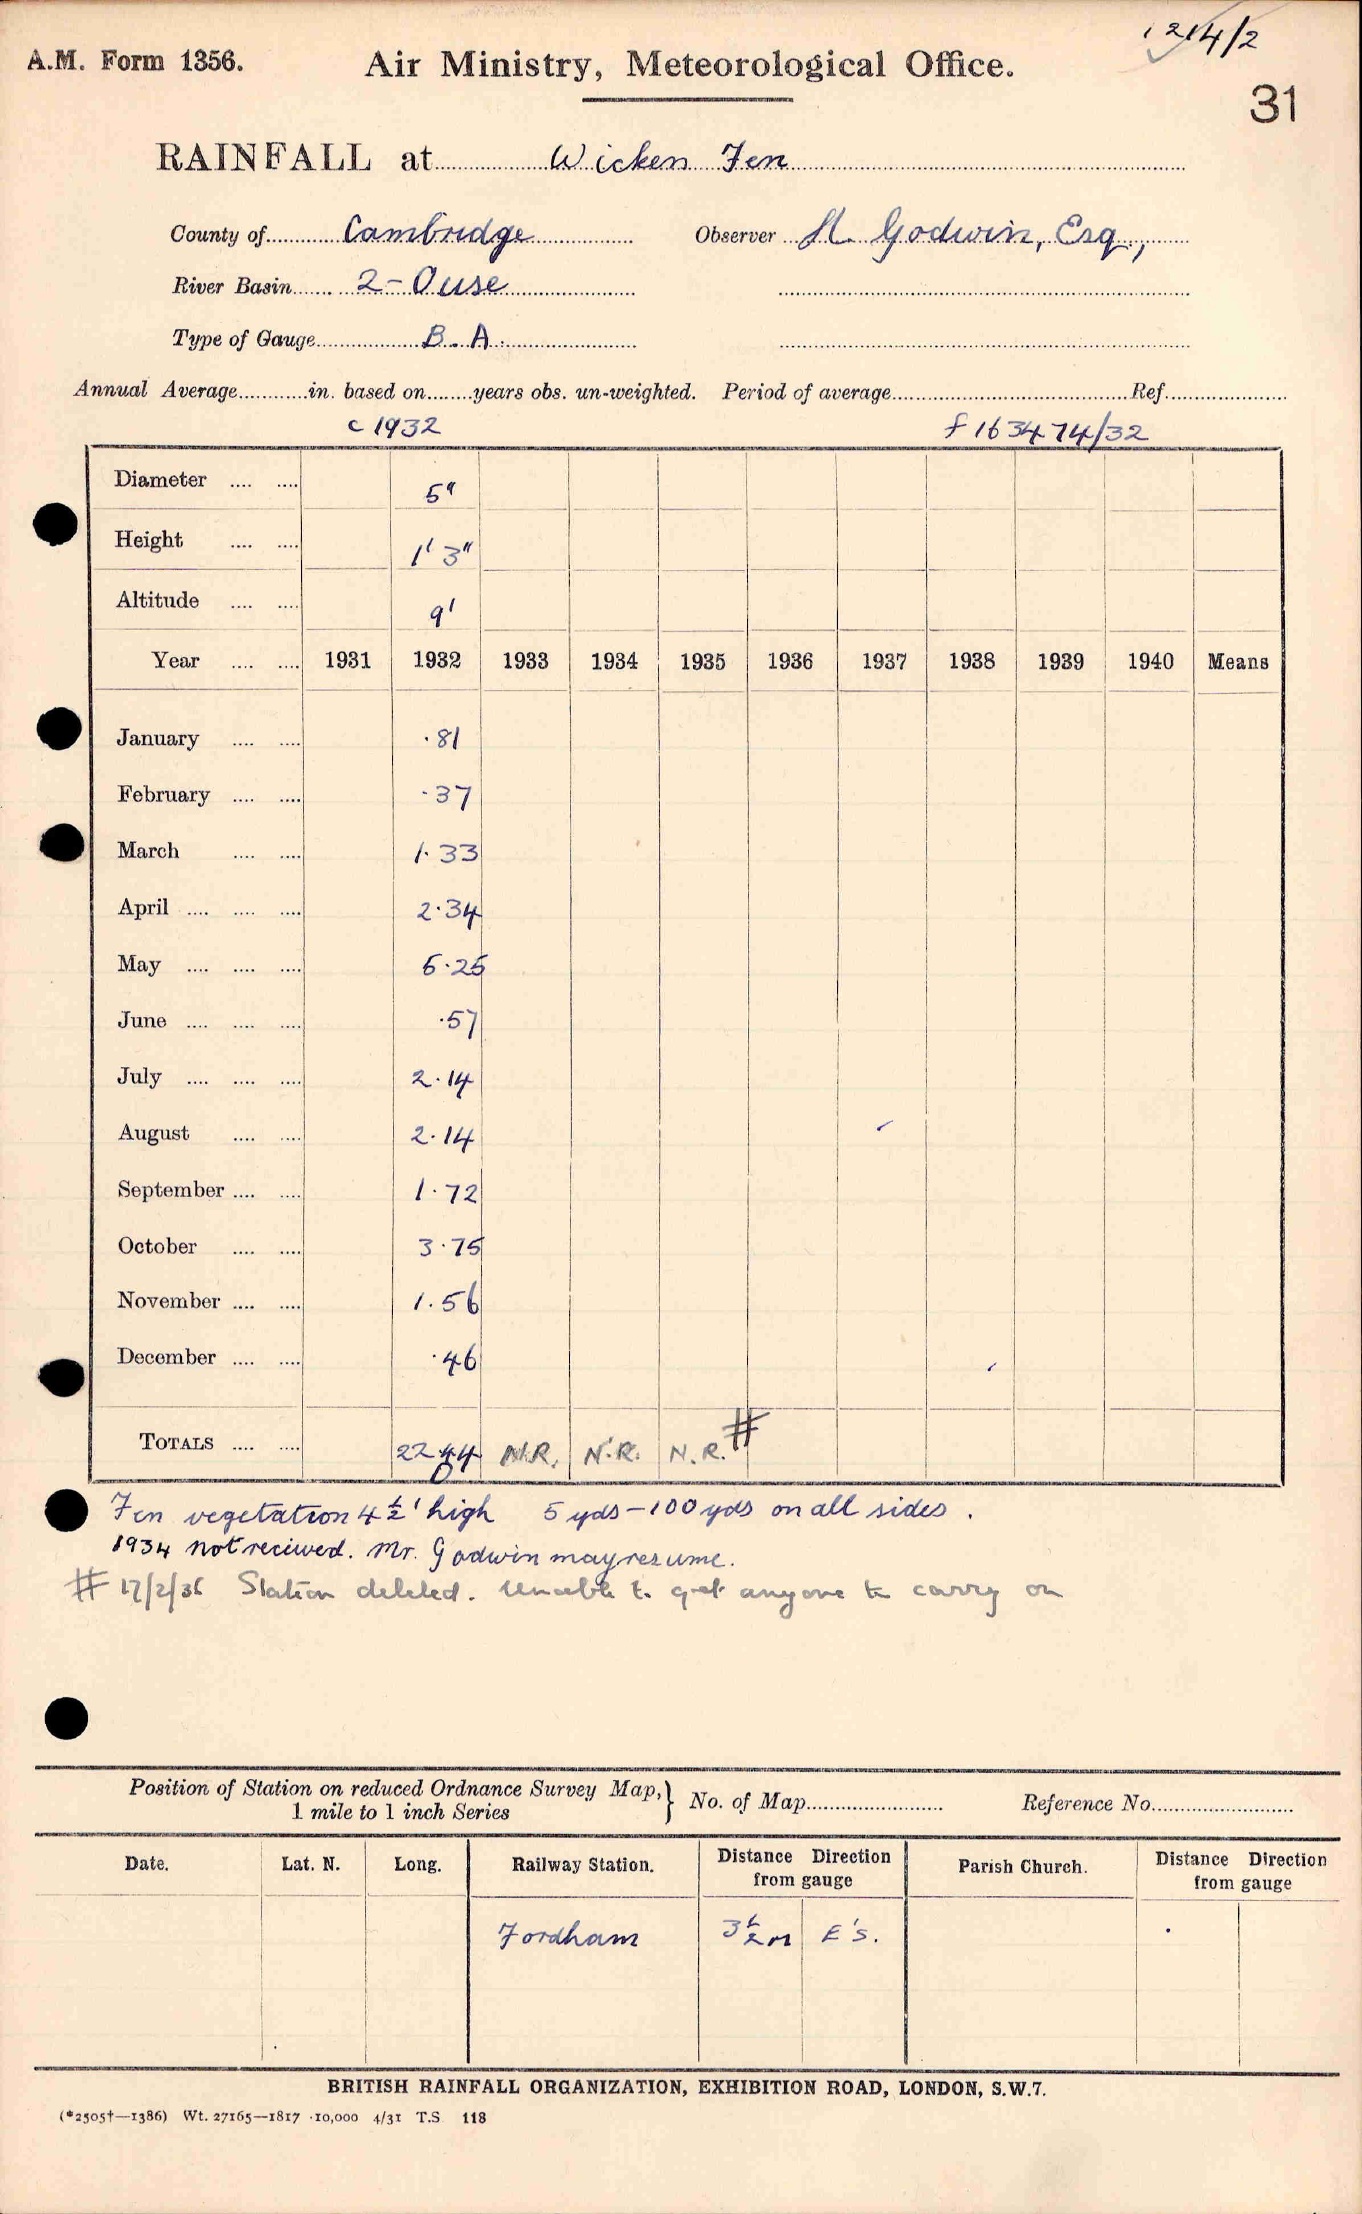 214/2
A.M. Form 1356. Air Ministry, Meteorological Office.
31
RAINFALL at Wicken Fen
County of Cambridge Observer H. Godwin, Esq.,
River Basin 2-Ouse
Type of Gauge B.A.
Annual Average............in. based on........years obs. un-weighted. Period of average........................................Ref.....................
c 1932 f 163474/32
Diameter .... .... 5"
Height .... .... 1' 3"
Altitude .... .... 9'
Year .... .... 1931 1932 1933 1934 1935 1936 1937 1938 1939 1940 Means
January .... .... ·81
February .... .... ·37
March .... .... 1·33
April .... .... .... 2·34
May .... .... .... 5·25
June .... .... .... ·57
July .... .... .... 2·14
August .... .... 2·14
September .... .... 1·72
October .... .... 3·75
November .... .... 1·56
December .... .... ·46
TOTALS .... .... 22·44 N.R. N.R. N.R. #
Fen vegetation 4½' high 5 yds – 100 yds on all sides.
1934 not reciwed. Mr. Godwin may resume.
# 17/2/36 Station deleted. Unable to get anyone to carry on
Position of Station on reduced Ordnance Survey Map, } No. of Map........................ Reference No.........................
1 mile to 1 inch Series
Date. Lat. N. Long. Railway Station. Distance Direction from gauge Parish Church. Distance Direction from gauge
Fordham 3½ m E'S.
BRITISH RAINFALL ORGANIZATION, EXHIBITION ROAD, LONDON, S.W.7.
(*2505†—1386) Wt. 27165—1817 ·10,000 4/31 T.S. 118